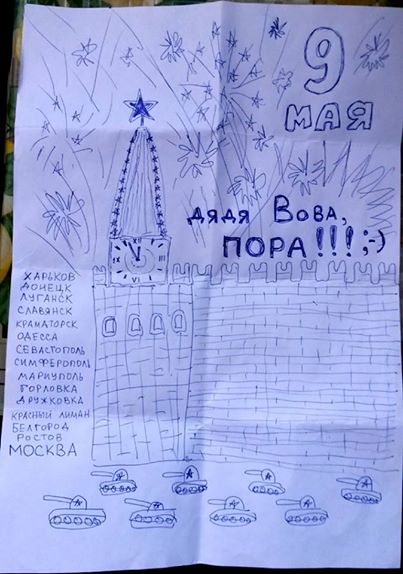 9
МАЯ
ДЯДЯ ВОВА,
ПОРА!!! ;-)
XII
IX III
VI
ХАРЬКОВ
ДОНЕЦК
ЛУГАНСК
СЛАВЯНСК
КРАМАТОРСК
ОДЕССА
СЕВАСТОПОЛЬ
СИМФЕРОПОЛЬ
МАРИУПОЛЬ
ГОРЛОВКА
ДРУЖКОВКА
КРАСНЫЙ ЛИМАН
БЕЛГОРОД
РОСТОВ
МОСКВА